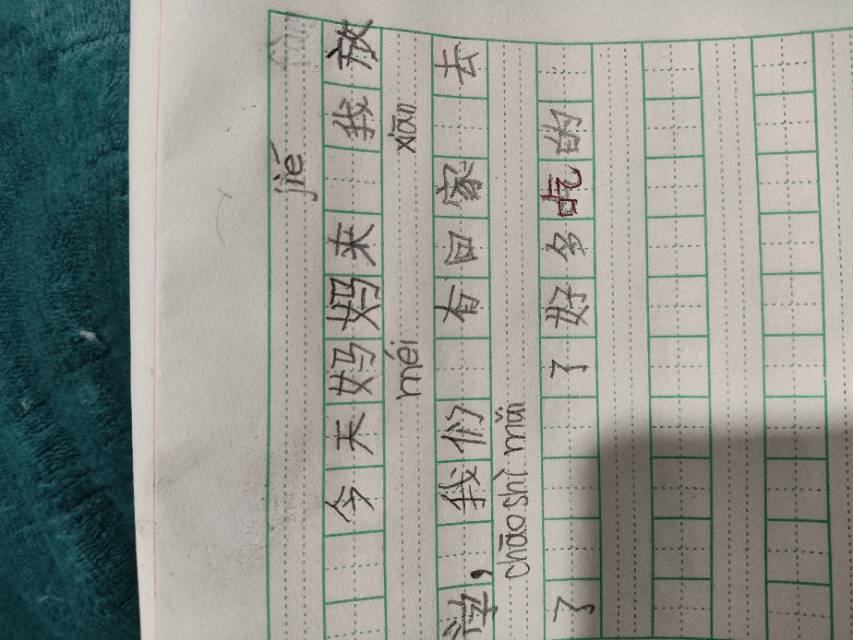 jié
今天妈妈来 我放
méi xiān
学，我们 有回家 去
chāo shì mǎi
了 了好多吃的